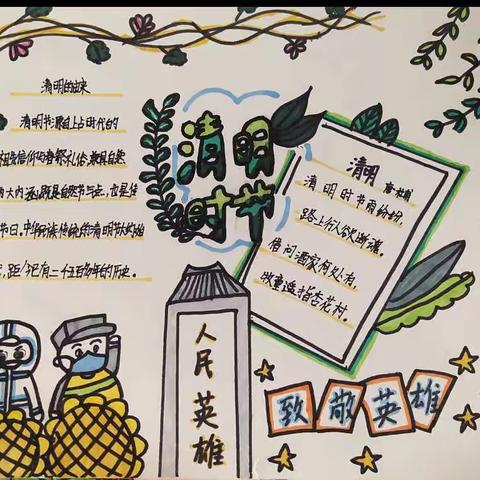 清明的由来
清明节源自上古时代的
祖先信仰与春祭礼俗,兼具自然
两大内涵,既是自然节气点,也是传
节日,中华民族传统的清明节大约始
距今已有二千五百多年的历史。
清明
时节
清明 唐 杜牧
清明时节雨纷纷,
路上行人欲断魂。
借问酒家何处有,
牧童遥指杏花村。
人民英雄
致敬英雄